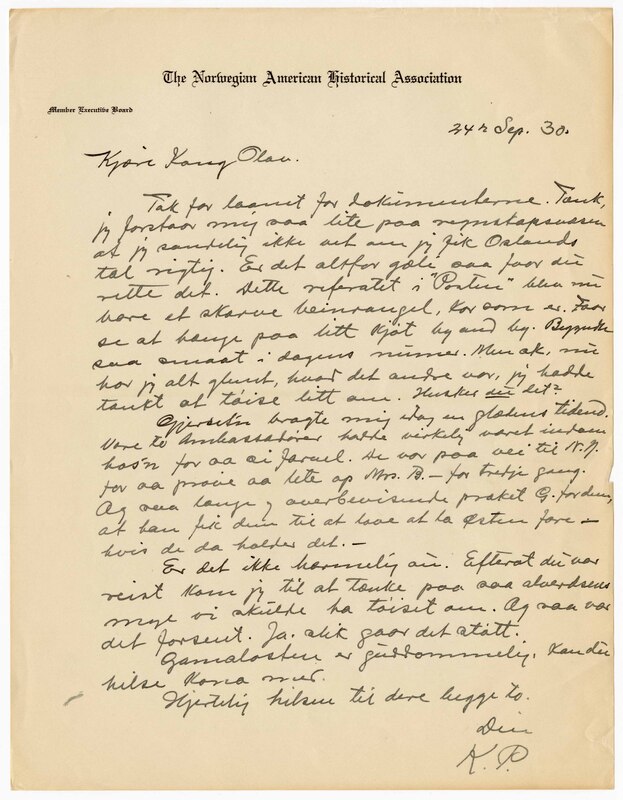 The Norwegian American Historical Association
Member Executive Board
24de Sep. 30.
Kjære Kong Olav.
Tak for laanet for dokumenterne. Tænk,
jeg forstaar mig saa lite paa regnskapsvæsen
at jeg sandelig ikke vet om jeg fik Oslands
tal rigtig. Er det altfor gale saa faar du
rette det. Dette referatet i "Posten" blev nu
bare et skarve beinrangel, kor som er. Faar
se at hænge paa litt kjøt by and by. Begynder
saa smaat i dagens numer. Men ak, nu
har jeg alt glemt, hvad det andre var, jeg hadde
tænkt at tøise litt om. Husker du det?
Gjerset'n bragte mig idag en glædens tidend.
Vore to Ambassadører hadde virkelig været indom
hos'n for aa si farvel. De var paa vei til N.Y.
for aa prøve aa lete op Mrs. B. – for tredje gang.
Aa saa længe og overbevisende præket G. for dem,
at han fik dem til at love at ta Østen føre –
hvis de da holder det. –
Er det ikke harmelig au. Efterat du var
reist kom jeg til at tænke paa saa alverdsens
møie vi skulde ha tøiset om. Aa saa var
det forsent. Ja. slik gaar det støtt.
Gamalosten er guddommelig. Kan du
hilse Kona mer.
Hjertelig hilsen til dere begge to.
Din
K. P.